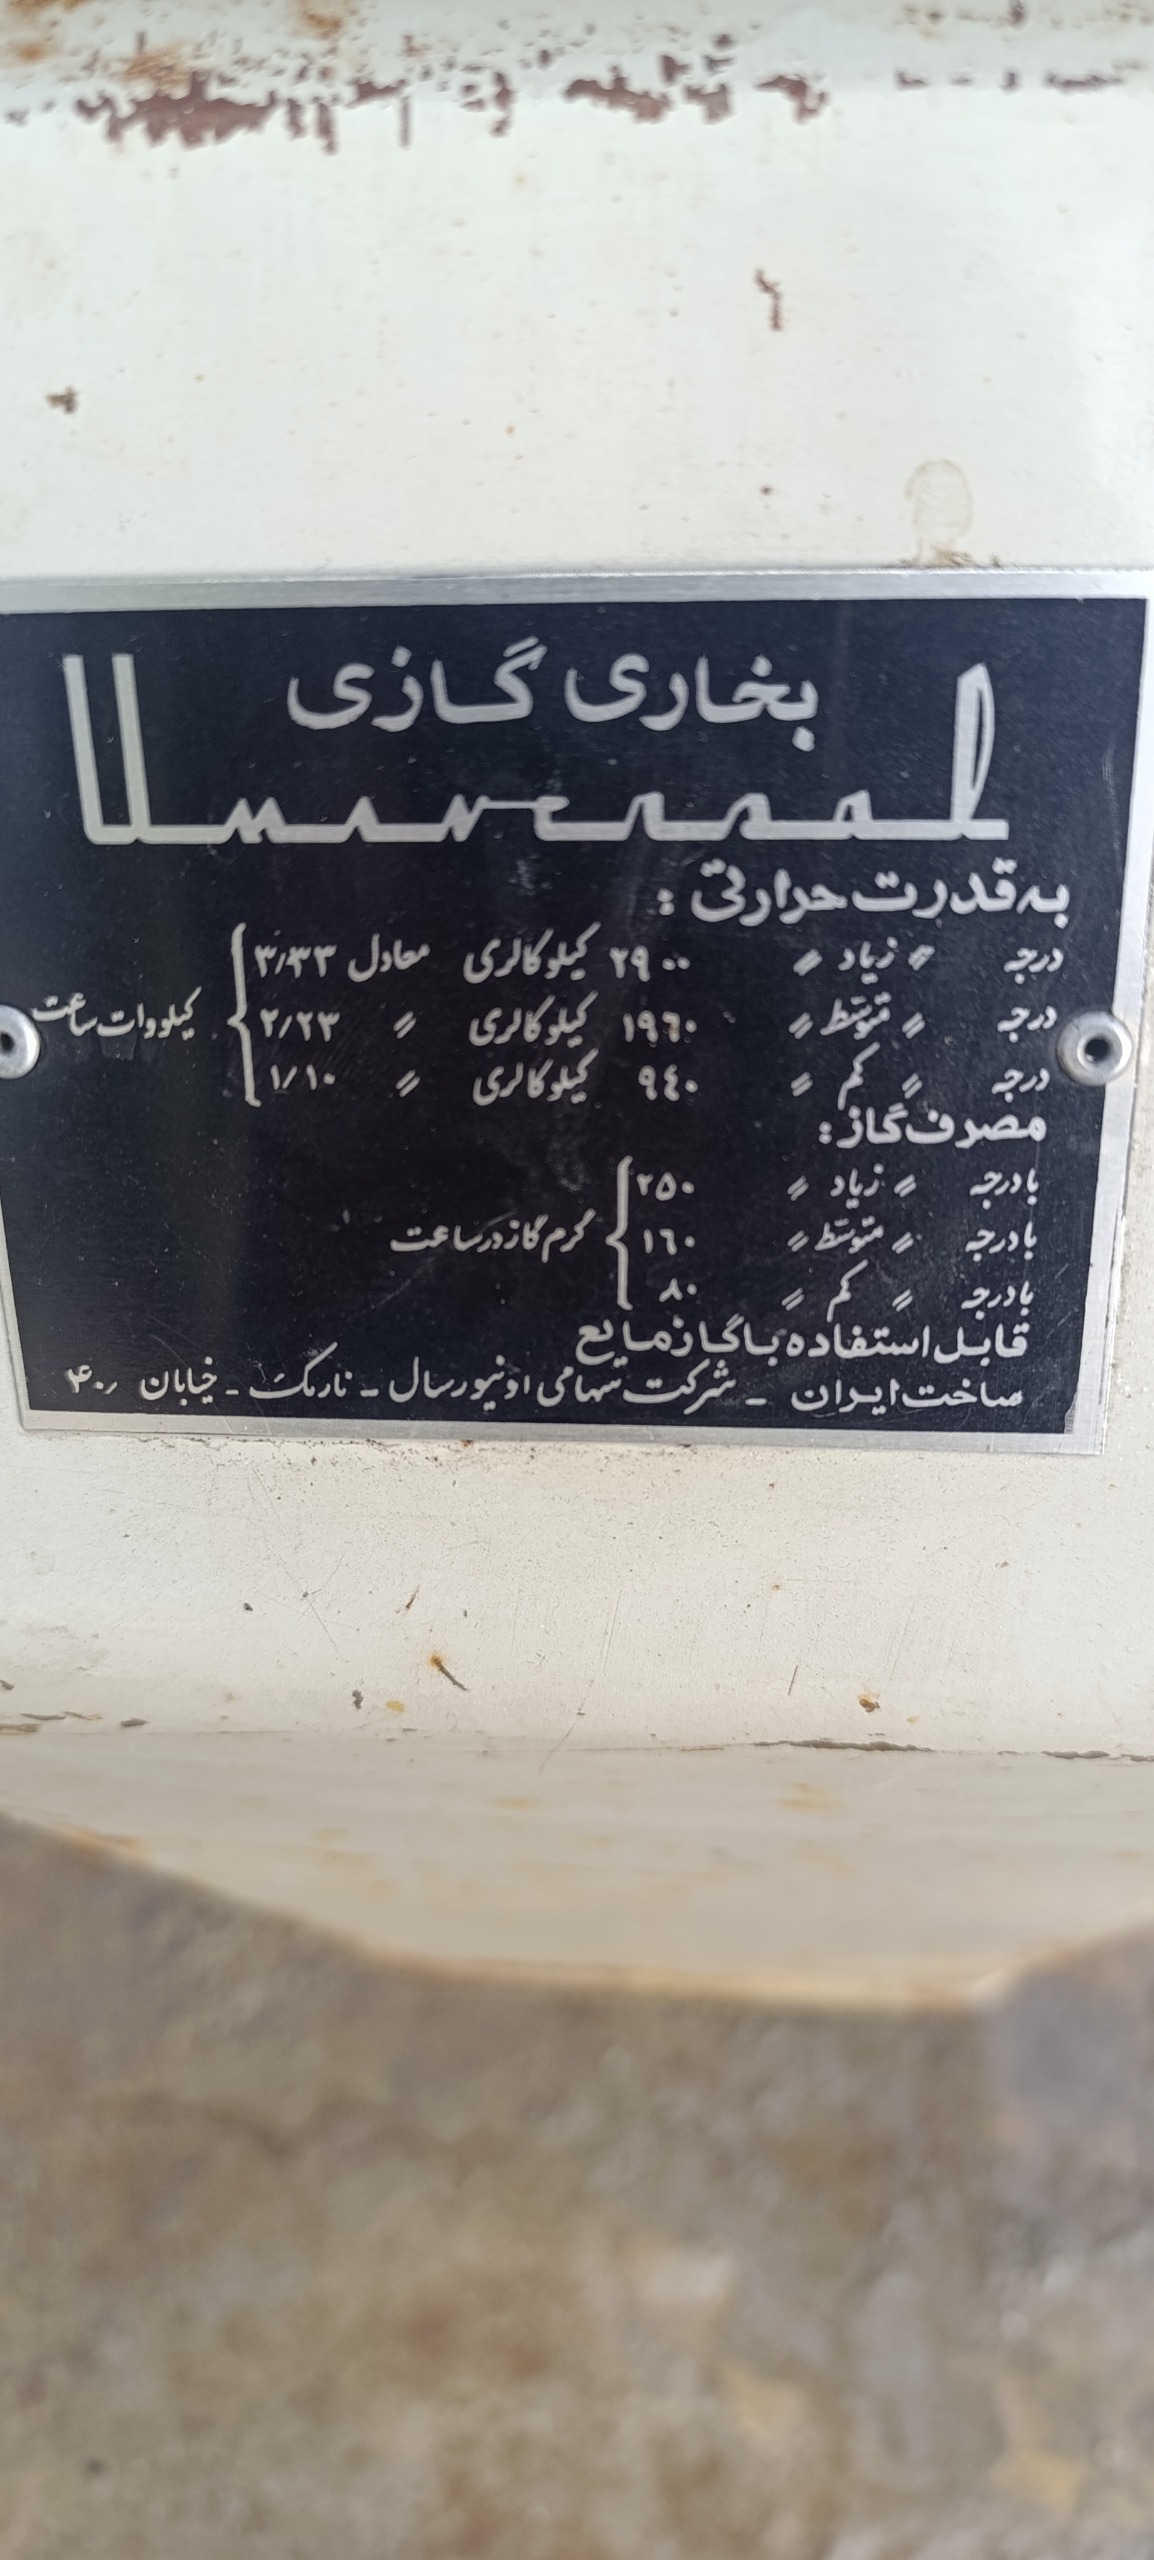 بخاری گازی
Universal
به قدرت حرارتی :
درجه 〃 زیاد 〃 ۲۹۰۰ کیلوکالری معادل ۳/۳۳
درجه 〃 متوسط 〃 ۱۹٦۰ کیلوکالری 〃 ۲/۲۳ کیلووات ساعت
درجه 〃 کم 〃 ۹٤۰ کیلوکالری 〃 ۱/۱۰
مصرف گاز :
با درجه 〃 زیاد 〃 ۲۵۰
با درجه 〃 متوسط 〃 ۱٦۰ گرم گاز در ساعت
با درجه 〃 کم 〃 ۸۰
قابل استفاده با گاز مایع
ساخت ایران - شرکت سهامی اونیورسال - نارمک - خیابان ۴۰٫